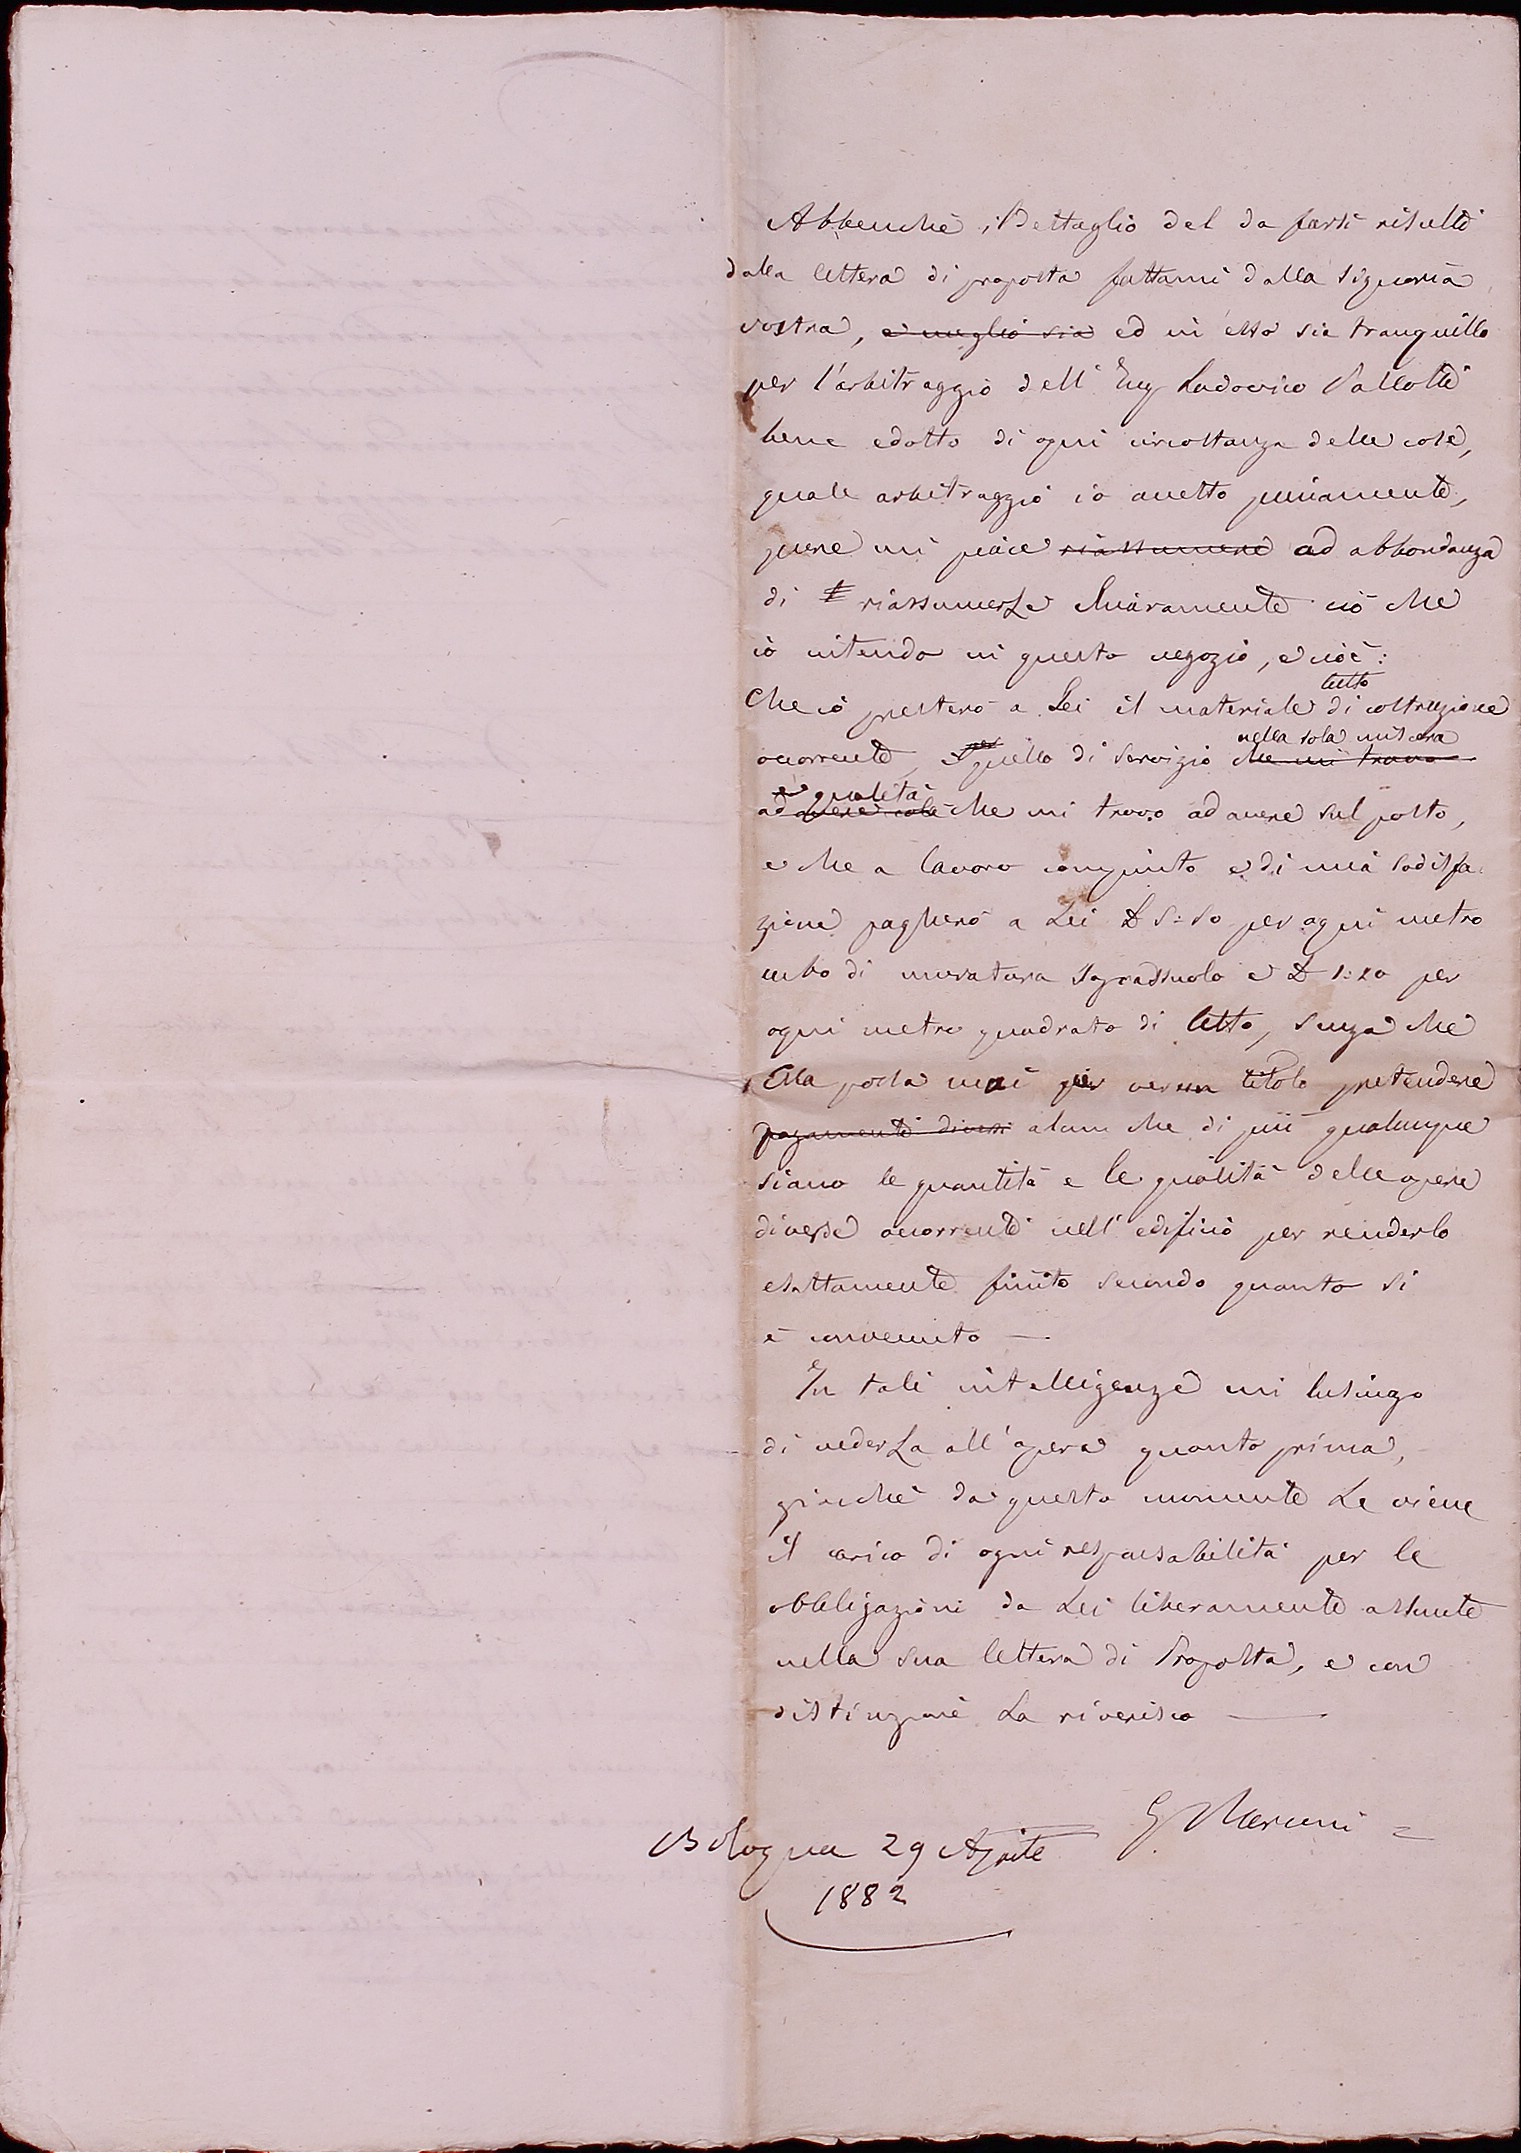 Abbenchè il Dettaglio del da farsi risulti
dalla lettera di proposta fattami dalla Signoria
vostra, e meglio sia ed in esso sia tranquillo
per l'arbitraggio dell'Ing Ludovico Pallotti
bene edotto di ogni circostanza delle cose,
quale arbitraggio io accetto pienamente,
pure mi piace riassumere ad abbondanza
di riassumerLe chiaramente ciò che
io intendo in questo negozio, e cioè:
tutto
Che io presterò a Lei il materiale di costruzione
nella sola misura
occorrente, quello di servizio che mi trovo
e qualità
ad avere che mi trovo ad avere sul posto,
e che a lavoro compiuto e di mia sodisfa-
zione pagherò a Lei £ 5:50 per ogni metro
cubo di muratura sopradsuolo e £ 1:20 per
ogni metro quadrato di tetto, senza che
Ella possa mai per verun titolo pretendere
pagamenti diversi alcun che di più qualunque
siano le quantità e le qualità delle opere
diverse occorrenti nell'edificio per renderlo
esattamente finito secondo quanto si
è convenuto —
In tali intelligenze mi lusingo
di vederLa all'opera quanto prima,
giacchè da questo momento Le viene
il carico di ogni responsabilità per le
obbligazioni da Lei liberamente assunte
nella sua lettera di Proposta, e con
distinzione La riverisco —
G Marcuni
Bologna 29 Aprile
1882